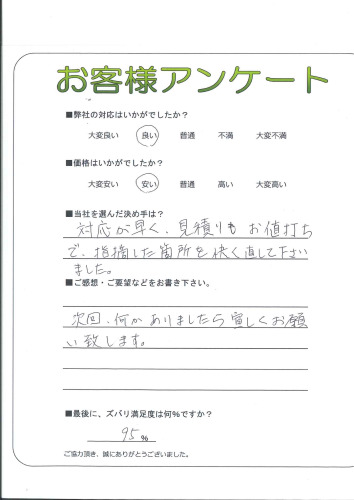 お客様アンケート
■弊社の対応はいかがでしたか？
大変良い 良い 普通 不満 大変不満
■価格はいかがでしたか？
大変安い 安い 普通 高い 大変高い
■当社を選んだ決め手は？
対応が早く、見積りも お値打ち
で、指摘した箇所を快く直して下さい
ました。
■ご感想・ご要望などをお書き下さい。
次回、何かありましたら宜しくお願
い致します。
■最後に、ズバリ満足度は何％ですか？
95 %
ご協力頂き、誠にありがとうございました。